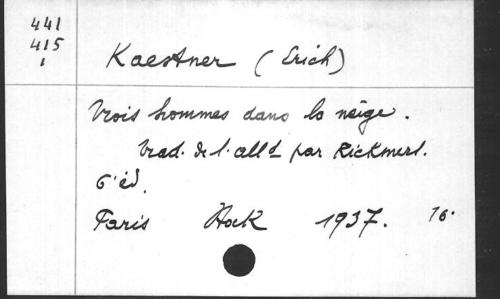 441
415
1
Kaestner (Erich)
Trois hommes dans la neige.
Trad. de l'alld par Rickmers.
6e éd.
Paris 1937. 16.